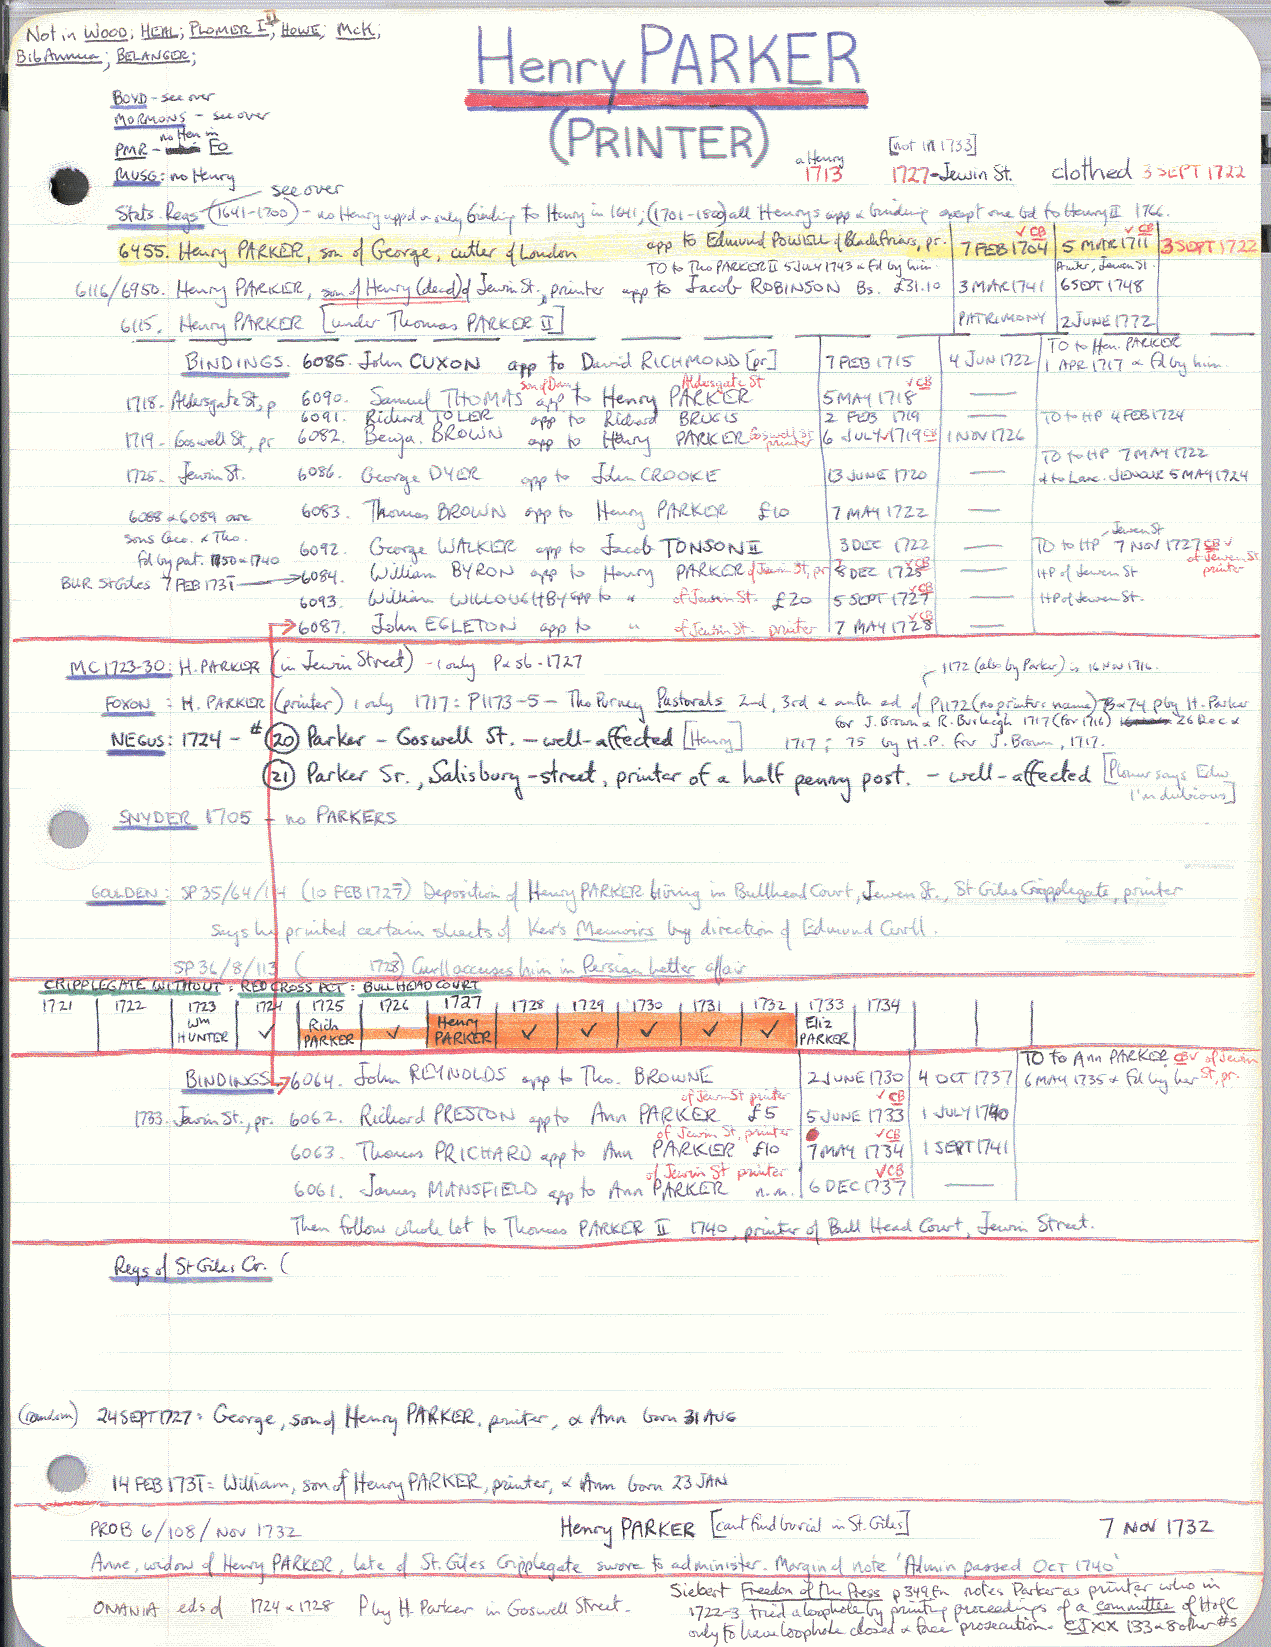 Not in WOOD; HEAL; PLOMER I, II; HOWE; McK;
BibAnnua; BELANGER;
Henry PARKER
(PRINTER)
BOYD - see over
MORMONS - see over
no Hen in
PMR - FO
MUSG: no Henry
a Henry
1713
[not in 1733]
1727-Jewin St.
clothed 3 SEPT 1722
see over
Stats. Regs (1641-1700) - no Henry appd & only binding to Henry in 1641; (1701-1800) all Henrys app & binding except one bd to Henry II 1766.
6455. Henry PARKER, son of George, cutler of London app to Edmund POWELL of Blackfriars, pr. 7 FEB 1704 ✓CB 5 MAR 1711 ✓CB 3 SEPT 1722
TO to Tho PARKER II 5 JULY 1743 & fd by him. Printer, Jewen St.
6116/6950. Henry PARKER, son of Henry (decd) of Jewin St., printer app to Jacob ROBINSON Bs. £31.10 3 MAR 1741 6 SEPT 1748
6115. Henry PARKER [under Thomas PARKER II] PATRIMONY 2 JUNE 1772
BINDINGS. 6085. John CUXON app to David RICHMOND [pr] 7 FEB 1715 4 JUN 1722 TO to Hen. PARKER
1 APR 1717 & fd by him.
son of Dan Aldersgate St
1718. Aldersgate St, p 6090. Samuel THOMAS app to Henry PARKER 5 MAY 1718 ✓CB —
6091. Richard TOLER app to Richard BRUGIS 2 FEB 1719 — TO to HP 4 FEB 1724
1719. Goswell St, pr 6082. Benja. BROWN app to Henry PARKER Goswell St printer 6 JULY 1719 CB 1 NOV 1726
TO to HP 7 MAY 1722
1725. Jewin St. 6086. George DYER app to John CROOKE 13 JUNE 1720 — & to Law. JENOUR 5 MAY 1724
6083. Thomas BROWN app to Henry PARKER £10 7 MAY 1722 —
6088 & 6089 are
sons Geo. & Tho.
fd by pat. 1750 & 1740
Jewen St
6092. George WALKER app to Jacob TONSON II 3 DEC 1722 — TO to HP 7 NOV 1727 CB ✓
of Jewen St
printer
BUR St Giles 7 FEB 1731 6084. William BYRON app to Henry PARKER of Jewin St, pr DEC 1725 ✓CB — HP of Jewen St
6093. William WILLOUGHBY app to " of Jewin St. £20 5 SEPT 1727 ✓CB — HP of Jewen St.
6087. John EGLETON app to " of Jewin St. printer 7 MAY 1728 ✓CB —
MC 1723-30: H. PARKER (in Jewin Street) - 1 only P & sb - 1727
1172 (also by Parker) is 16 Nov 1716.
FOXON: H. PARKER (printer) 1 only 1717: P1173-5 - Tho Purney Pastorals 2nd, 3rd & anth ed of P1172 (no printers name) 73 & 74 p by H. Parker
for J. Brown & R. Burleigh 1717 (for 1716) 26 Dec &
NEGUS: 1724 - # (20) Parker - Goswell St. - well-affected [Henry] 1717; 75 by H.P. for J. Brown, 1717.
(21) Parker Sr., Salisbury-street, printer of a half penny post. - well-affected [Plomer says Edw
I'm dubious]
SNYDER 1705 - no PARKERS
GOULDEN: SP 35/64/114 (10 FEB 1727) Deposition of Henry PARKER living in Bullhead Court, Jewen St., St Giles Cripplegate, printer
says he printed certain sheets of Ker's Memoirs by direction of Edmund Curll.
SP 36/8/113 ( 1728) Curll accuses him in Persian Letter affair
CRIPPLEGATE WITHOUT: RED CROSS PCT: BULL HEAD COURT
1721 1722 1723 1724 1725 1726 1727 1728 1729 1730 1731 1732 1733 1734
Wm HUNTER ✓ Rich PARKER ✓ Henry PARKER ✓ ✓ ✓ ✓ ✓ Eliz PARKER
BINDINGS 6064. John REYNOLDS app to Tho. BROWNE 2 JUNE 1730 4 OCT 1737 TO to Ann PARKER CB✓ of Jewin
6 MAY 1735 & fd by her St, pr.
of Jewin St printer ✓CB
1733. Jewin St., pr. 6062. Richard PRESTON app to Ann PARKER £5 5 JUNE 1733 1 JULY 1740
of Jewin St, printer ✓CB
6063. Thomas PRICHARD app to Ann PARKER £10 7 MAY 1734 1 SEPT 1741
of Jewin St printer ✓CB
6061. James MANSFIELD app to Ann PARKER n.m. 6 DEC 1737 —
Then follow whole lot to Thomas PARKER II 1740, printer of Bull Head Court, Jewin Street.
Regs of St Giles Cr. (
(random) 24 SEPT 1727: George, son of Henry PARKER, printer, & Ann born 31 AUG
14 FEB 1731: William, son of Henry PARKER, printer, & Ann born 23 JAN
PROB 6/108/NOV 1732 Henry PARKER [cant find burial in St. Giles] 7 NOV 1732
Anne, widow of Henry PARKER, late of St. Giles Cripplegate swore to administer. Marginal note 'Admin passed OCT 1740'
ONANIA eds of 1724 & 1728 P by H. Parker in Goswell Street.
Siebert Freedom of the Press p 349 fn notes Parker as printer who in
1722-3 tried a loophole by printing proceedings of a committee of H of C
only to have loophole closed & face prosecution. CJ XX 133 & 8 other #s